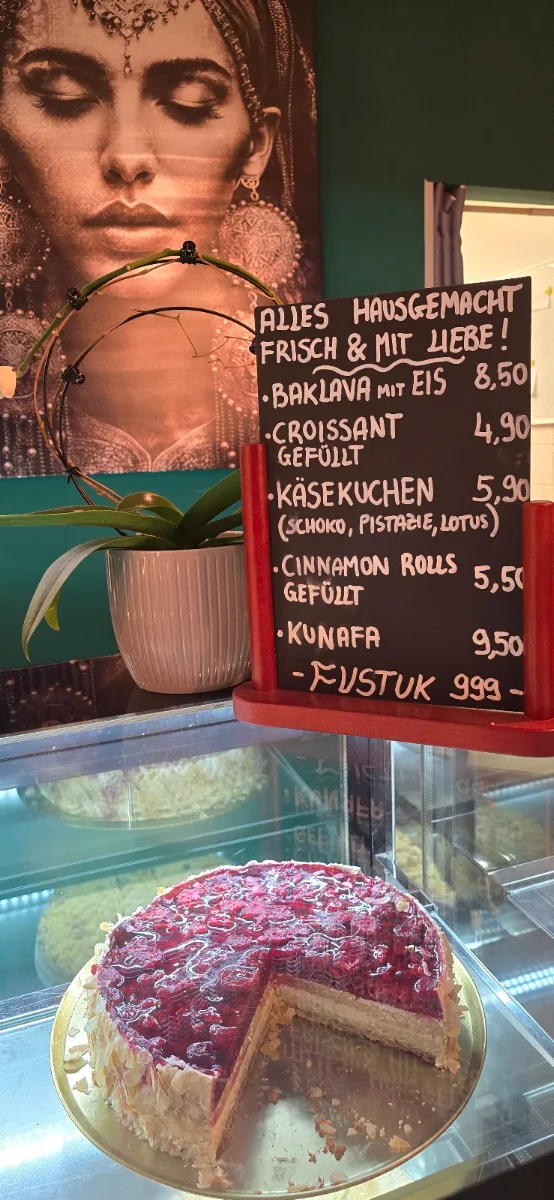 ALLES HAUSGEMACHT
FRISCH & MIT LIEBE!
• BAKLAVA MIT EIS 8,50
• CROISSANT 4,90
GEFÜLLT
• KÄSEKUCHEN 5,90
(SCHOKO, PISTAZIE, LOTUS)
• CINNAMON ROLLS 5,50
GEFÜLLT
• KUNAFA 9,50
- FUSTUK 999 -